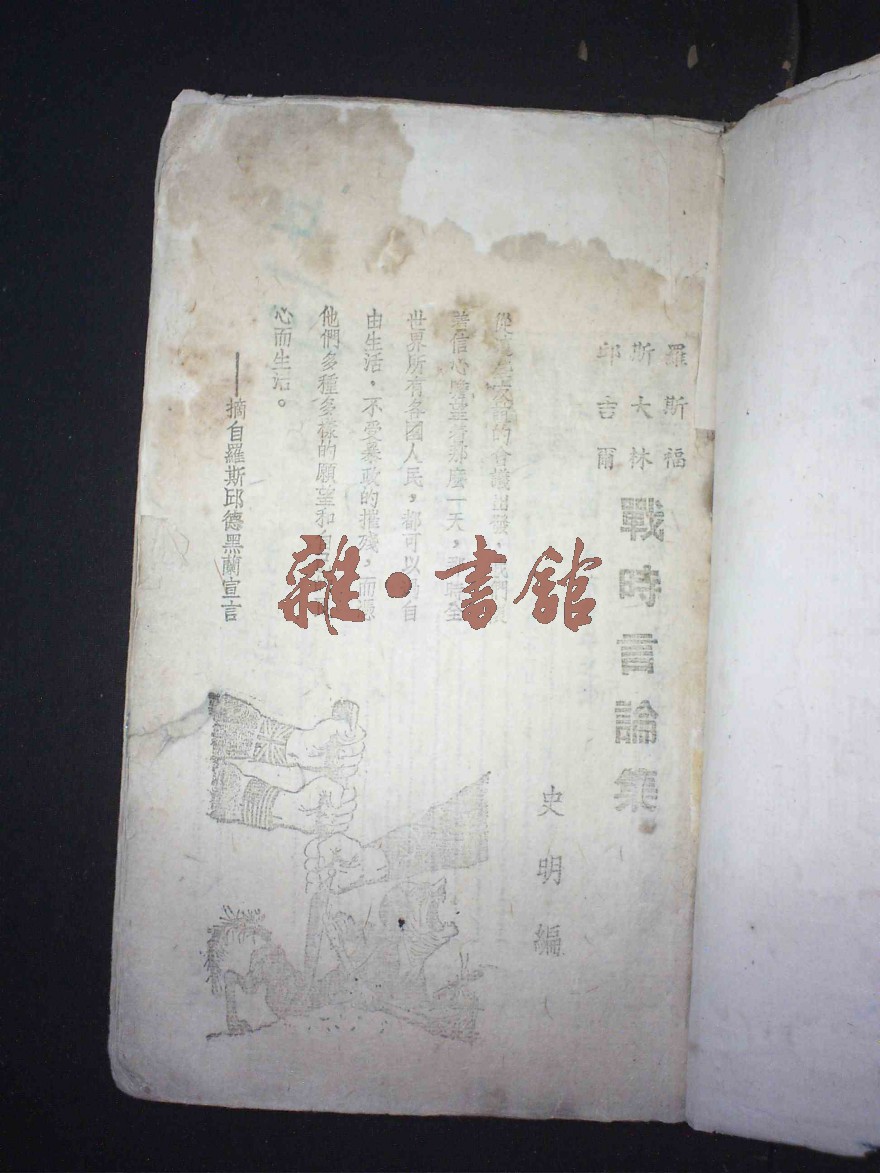 羅斯福
斯大林
邱吉爾
戰時言論集
史明編
從友誼的會議出發，我們
着信心瞻望着那麼一天，那時全
世界所有各國人民，都可以自
由生活，不受暴政的摧殘，而憑
他們多種多樣的願望和自
心而生活。
——摘自羅斯邱德黑蘭宣言
雜·書館